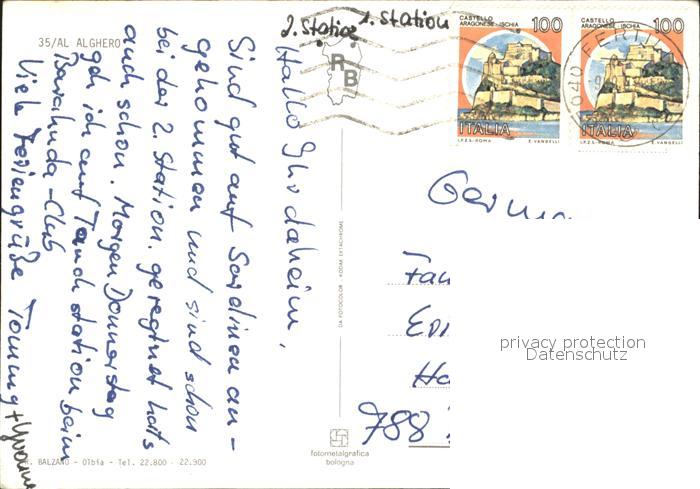 35/AL ALGHERO
2. Station
1. Station
RB
CASTELLO ARAGONESE - ISCHIA 100
ITALIA
I.P.Z.S. - ROMA E. VANGELLI
CASTELLO ARAGONESE - ISCHIA 100
ITALIA
I.P.Z.S. - ROMA E. VANGELLI
Hallo Ihr daheim,
Sind gut auf Sardinien an-
gekommen und sind schon
bei der 2. Station. geregnet hat's
auch schon. Morgen Donnerstag
geh ich auf Tauchstation beim
Barakuda-Club
Viele Feriengrüße Tommy + Yvonne
DA FOTOCOLOR KODAK EKTACHROME
fotometalgrafica
bologna
BALZANO - Olbia - Tel. 22.800 - 22.900
788
privacy protection
Datenschutz